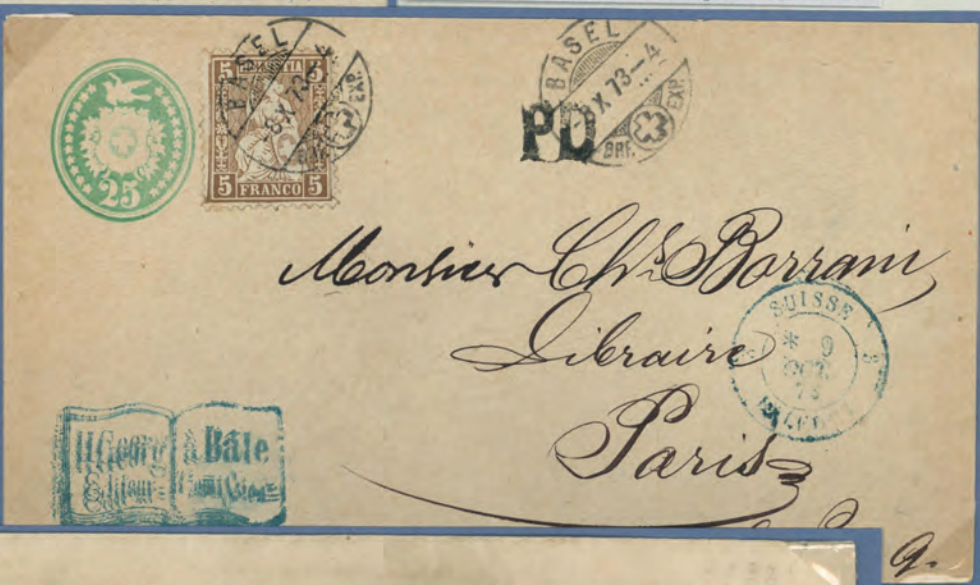 25
5 HELVETIA 5
5 FRANCO 5
BASEL
8 X 73-4
BRF. EXP.
BASEL
8 X 73-4
BRF. EXP.
PD
Monsieur Chs Borrani
Libraire
Paris
SUISSE
* 9
OCT.
73
3
H Georg à Bâle
Editeur
9.